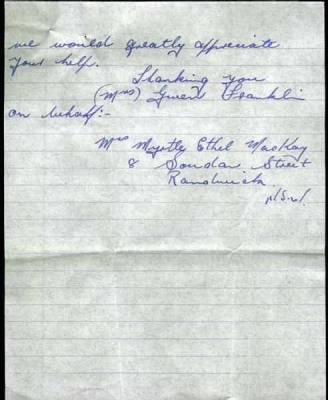 we would greatly appreciate
your help.
Thanking you
(Mrs) Gwen Franklin
on behalf:-
Mrs Myrtly Ethel MacKay
8 Soudan Street
Randwick
N.S.W.